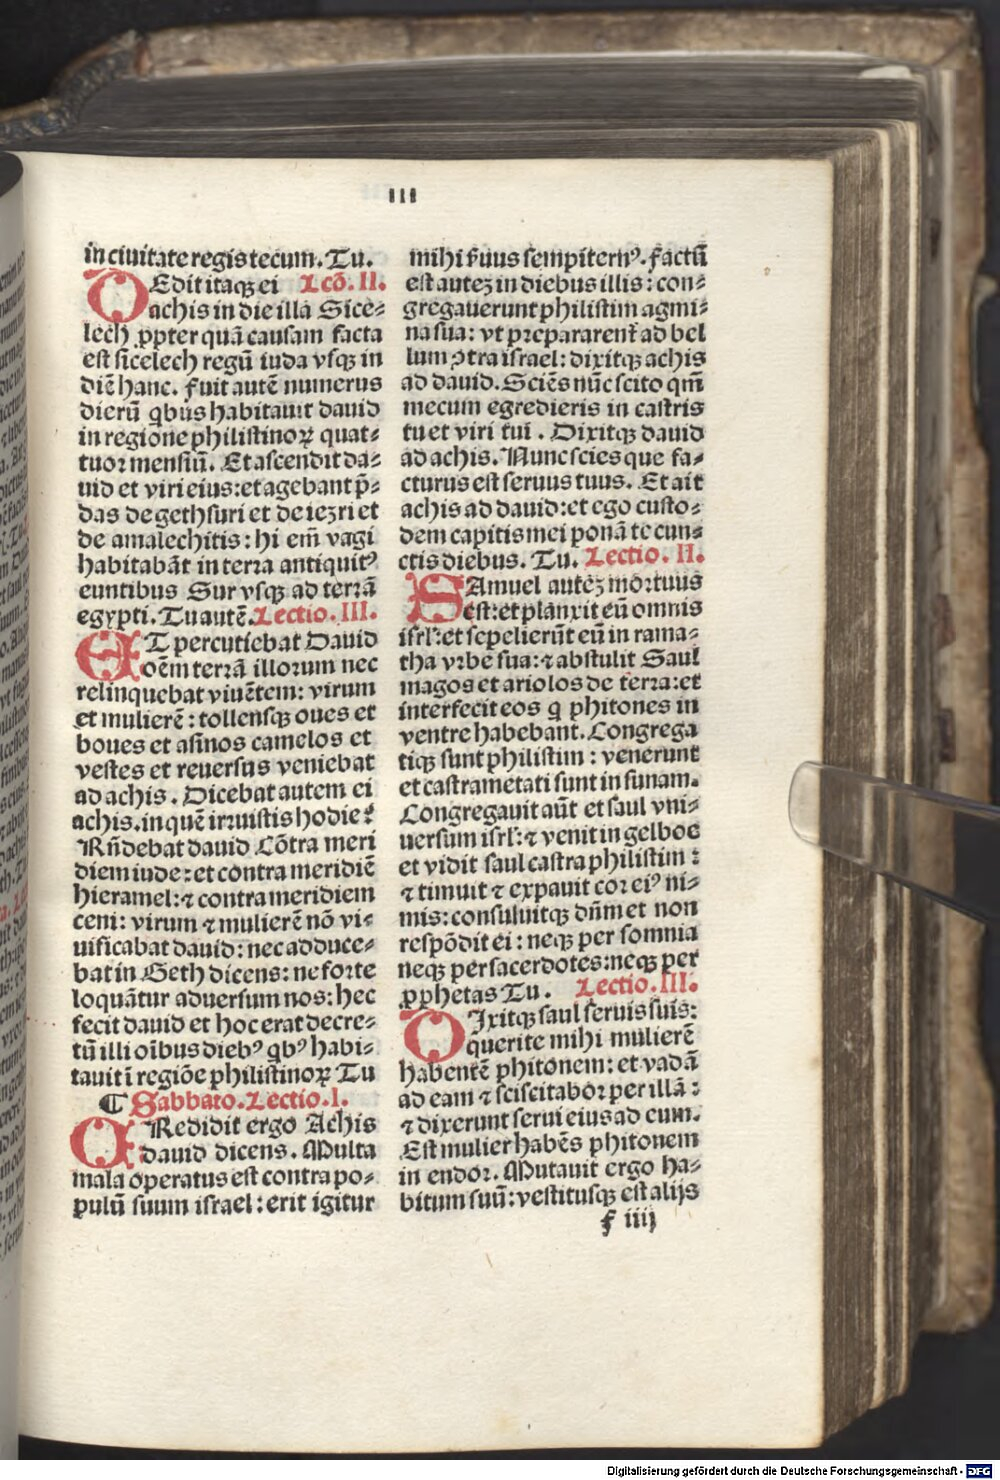 III
in ciuitate regis tecum. Tu.
DEdit itaqꝫ ei Lcō. II.
achis in die illa Sice-
lech ꝓpter quā causam facta
est sicelech regū iuda vsqꝫ in
diē hanc. fuit autē numerus
dierū qbus habitauit dauid
in regione philistinoꝝ quat-
tuor mensiū. Et ascendit da-
uid et viri eius: et agebant p̄-
das de gethsuri et de iezri et
de amalechitis: hi em̄ vagi
habitabāt in terra antiquitꝰ
euntibus Sur vsqꝫ ad terrā
egypti. Tu autē. Lectio. III.
ET percutiebat Dauid
oēm terrā illorum nec
relinquebat viuētem: virum
et mulierē: tollensqꝫ oues et
boues et asinos camelos et
vestes et reuersus veniebat
ad achis. Dicebat autem ei
achis. in quē irruistis hodie?
Rn̄debat dauid Cōtra meri
diem iude: et contra meridiē
hieramel: ⁊ contra meridiem
ceni: virum ⁊ mulierē nō vi-
uificabat dauid: nec adduce-
bat in Geth dicens: ne forte
loquātur aduersum nos: hec
fecit dauid et hoc erat decre-
tū illi oībus diebꝰ qbꝰ habi-
tauit ī regiōe philistinoꝝ Tu
¶ Sabbato. Lectio. I.
CRedidit ergo Achis
dauid dicens. Multa
mala operatus est contra po-
pulū suum israel: erit igitur
mihi s̄uus sempiternꝰ. factū
est auteꝫ in diebus illis: con-
gregauerunt philistim agmi-
na sua: vt prepararent̄ ad bel
lum ꝯtra israel: dixitqꝫ achis
ad dauid. Sciēs nūc scito qm̄
mecum egredieris in castris
tu et viri tui. Dixitqꝫ dauid
ad achis. Nunc scies que fa-
cturus est seruus tuus. Et ait
achis ad dauid: et ego custo-
dem capitis mei ponā te cun-
ctis diebus. Tu. Lectio. II.
SAmuel auteꝫ mortuus
est: et planxit eū omnis
isrl̄: et sepelierūt eū in rama-
tha vrbe sua: ⁊ abstulit Saul
magos et ariolos de terra: et
interfecit eos q phitones in
ventre habebant. Congrega
tiqꝫ sunt philistim: venerunt
et castrametati sunt in sunam.
Congregauit aūt et saul vni-
uersum isrl̄: ⁊ venit in gelboe
et vidit saul castra philistim:
⁊ timuit ⁊ expauit cor eiꝰ ni-
mis: consuluitqꝫ dn̄m et non
respōdit ei: neqꝫ per somnia
neqꝫ per sacerdotes: neqꝫ per
ꝓphetas Tu. Lectio. III.
DIxitqꝫ saul seruis suis:
querite mihi mulierē
habentē phitonem: et vadā
ad eam ⁊ sciscitabor per illā:
⁊ dixerunt serui eius ad eum.
Est mulier habēs phitonem
in endor. Mutauit ergo ha-
bitum suū: vestitusqꝫ est alijs
f iiij
Digitalisierung gefördert durch die Deutsche Forschungsgemeinschaft - DFG